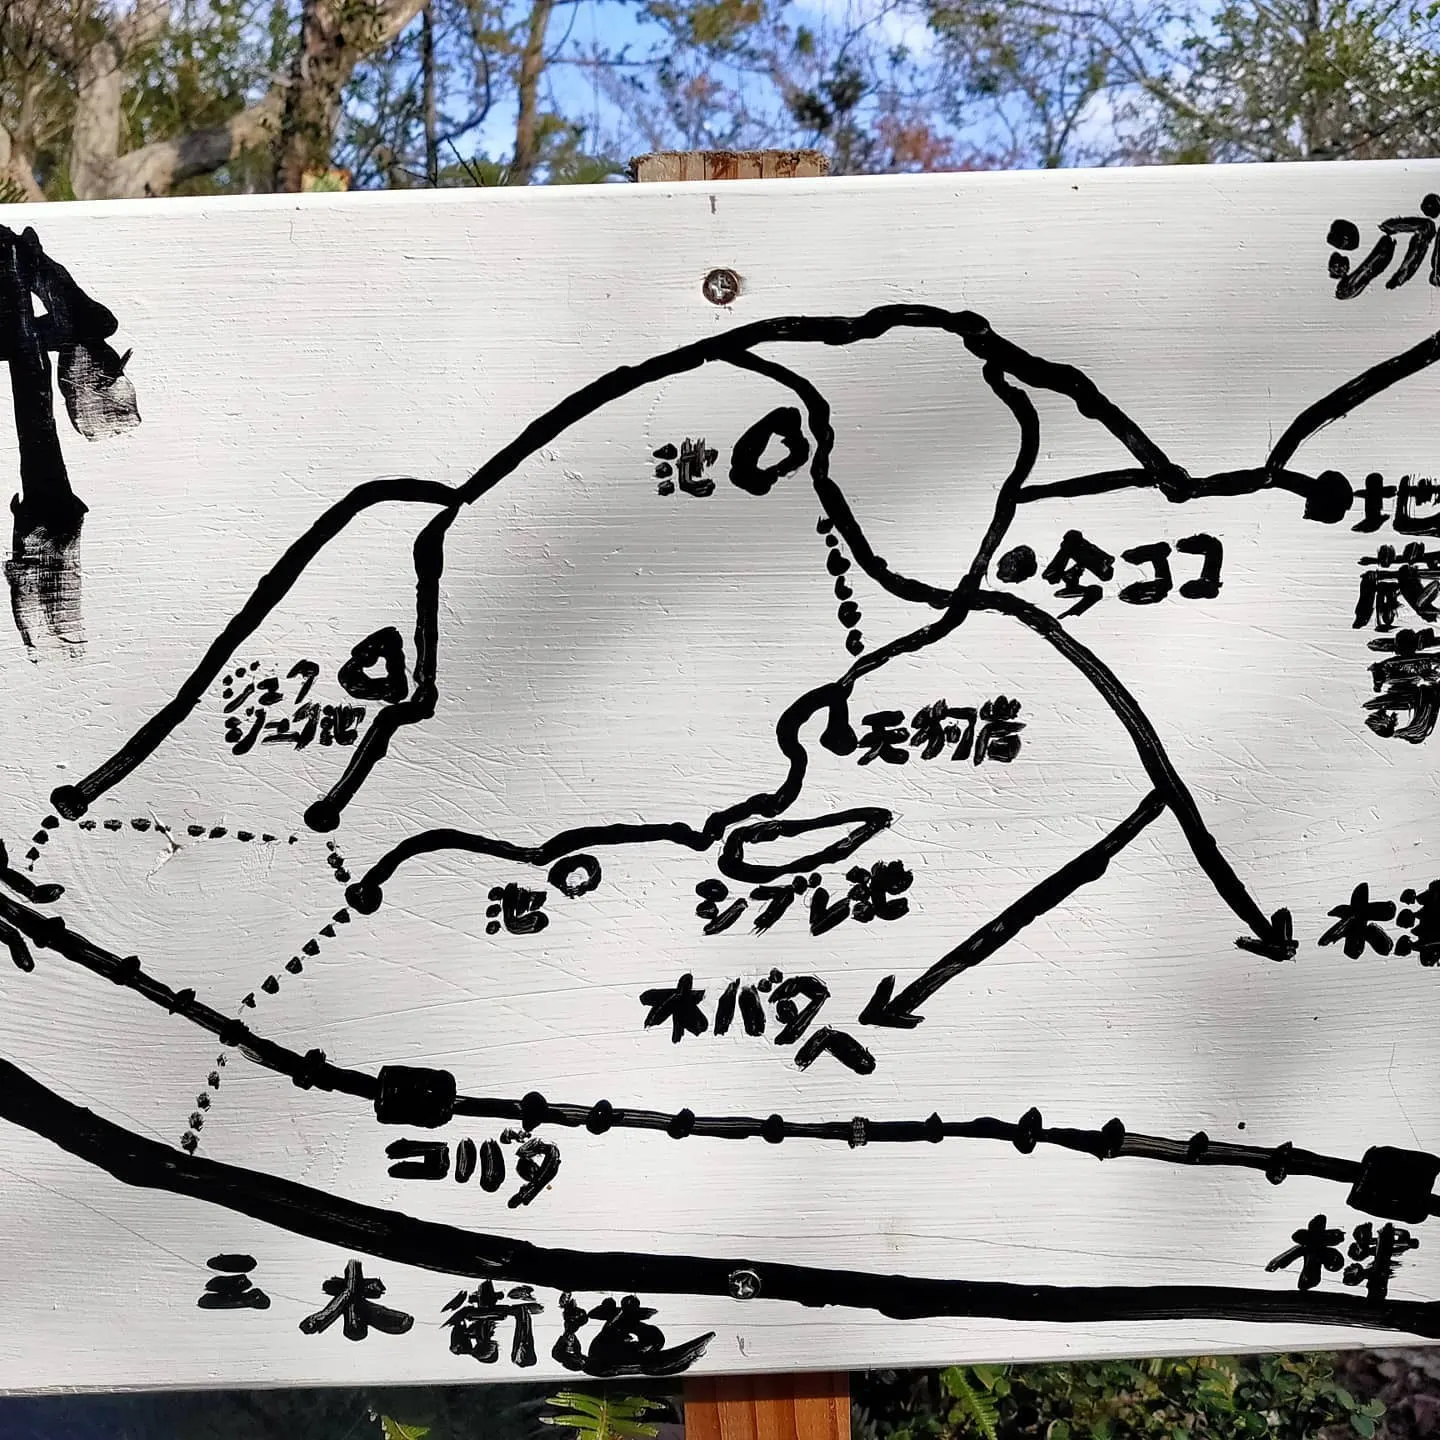 シブレ
池
地
蔵
尊
今ココ
ジュク
ジュク池
天狗岩
池
シブレ池
木津
木バタ
へ
コバタ
木津
三木街道